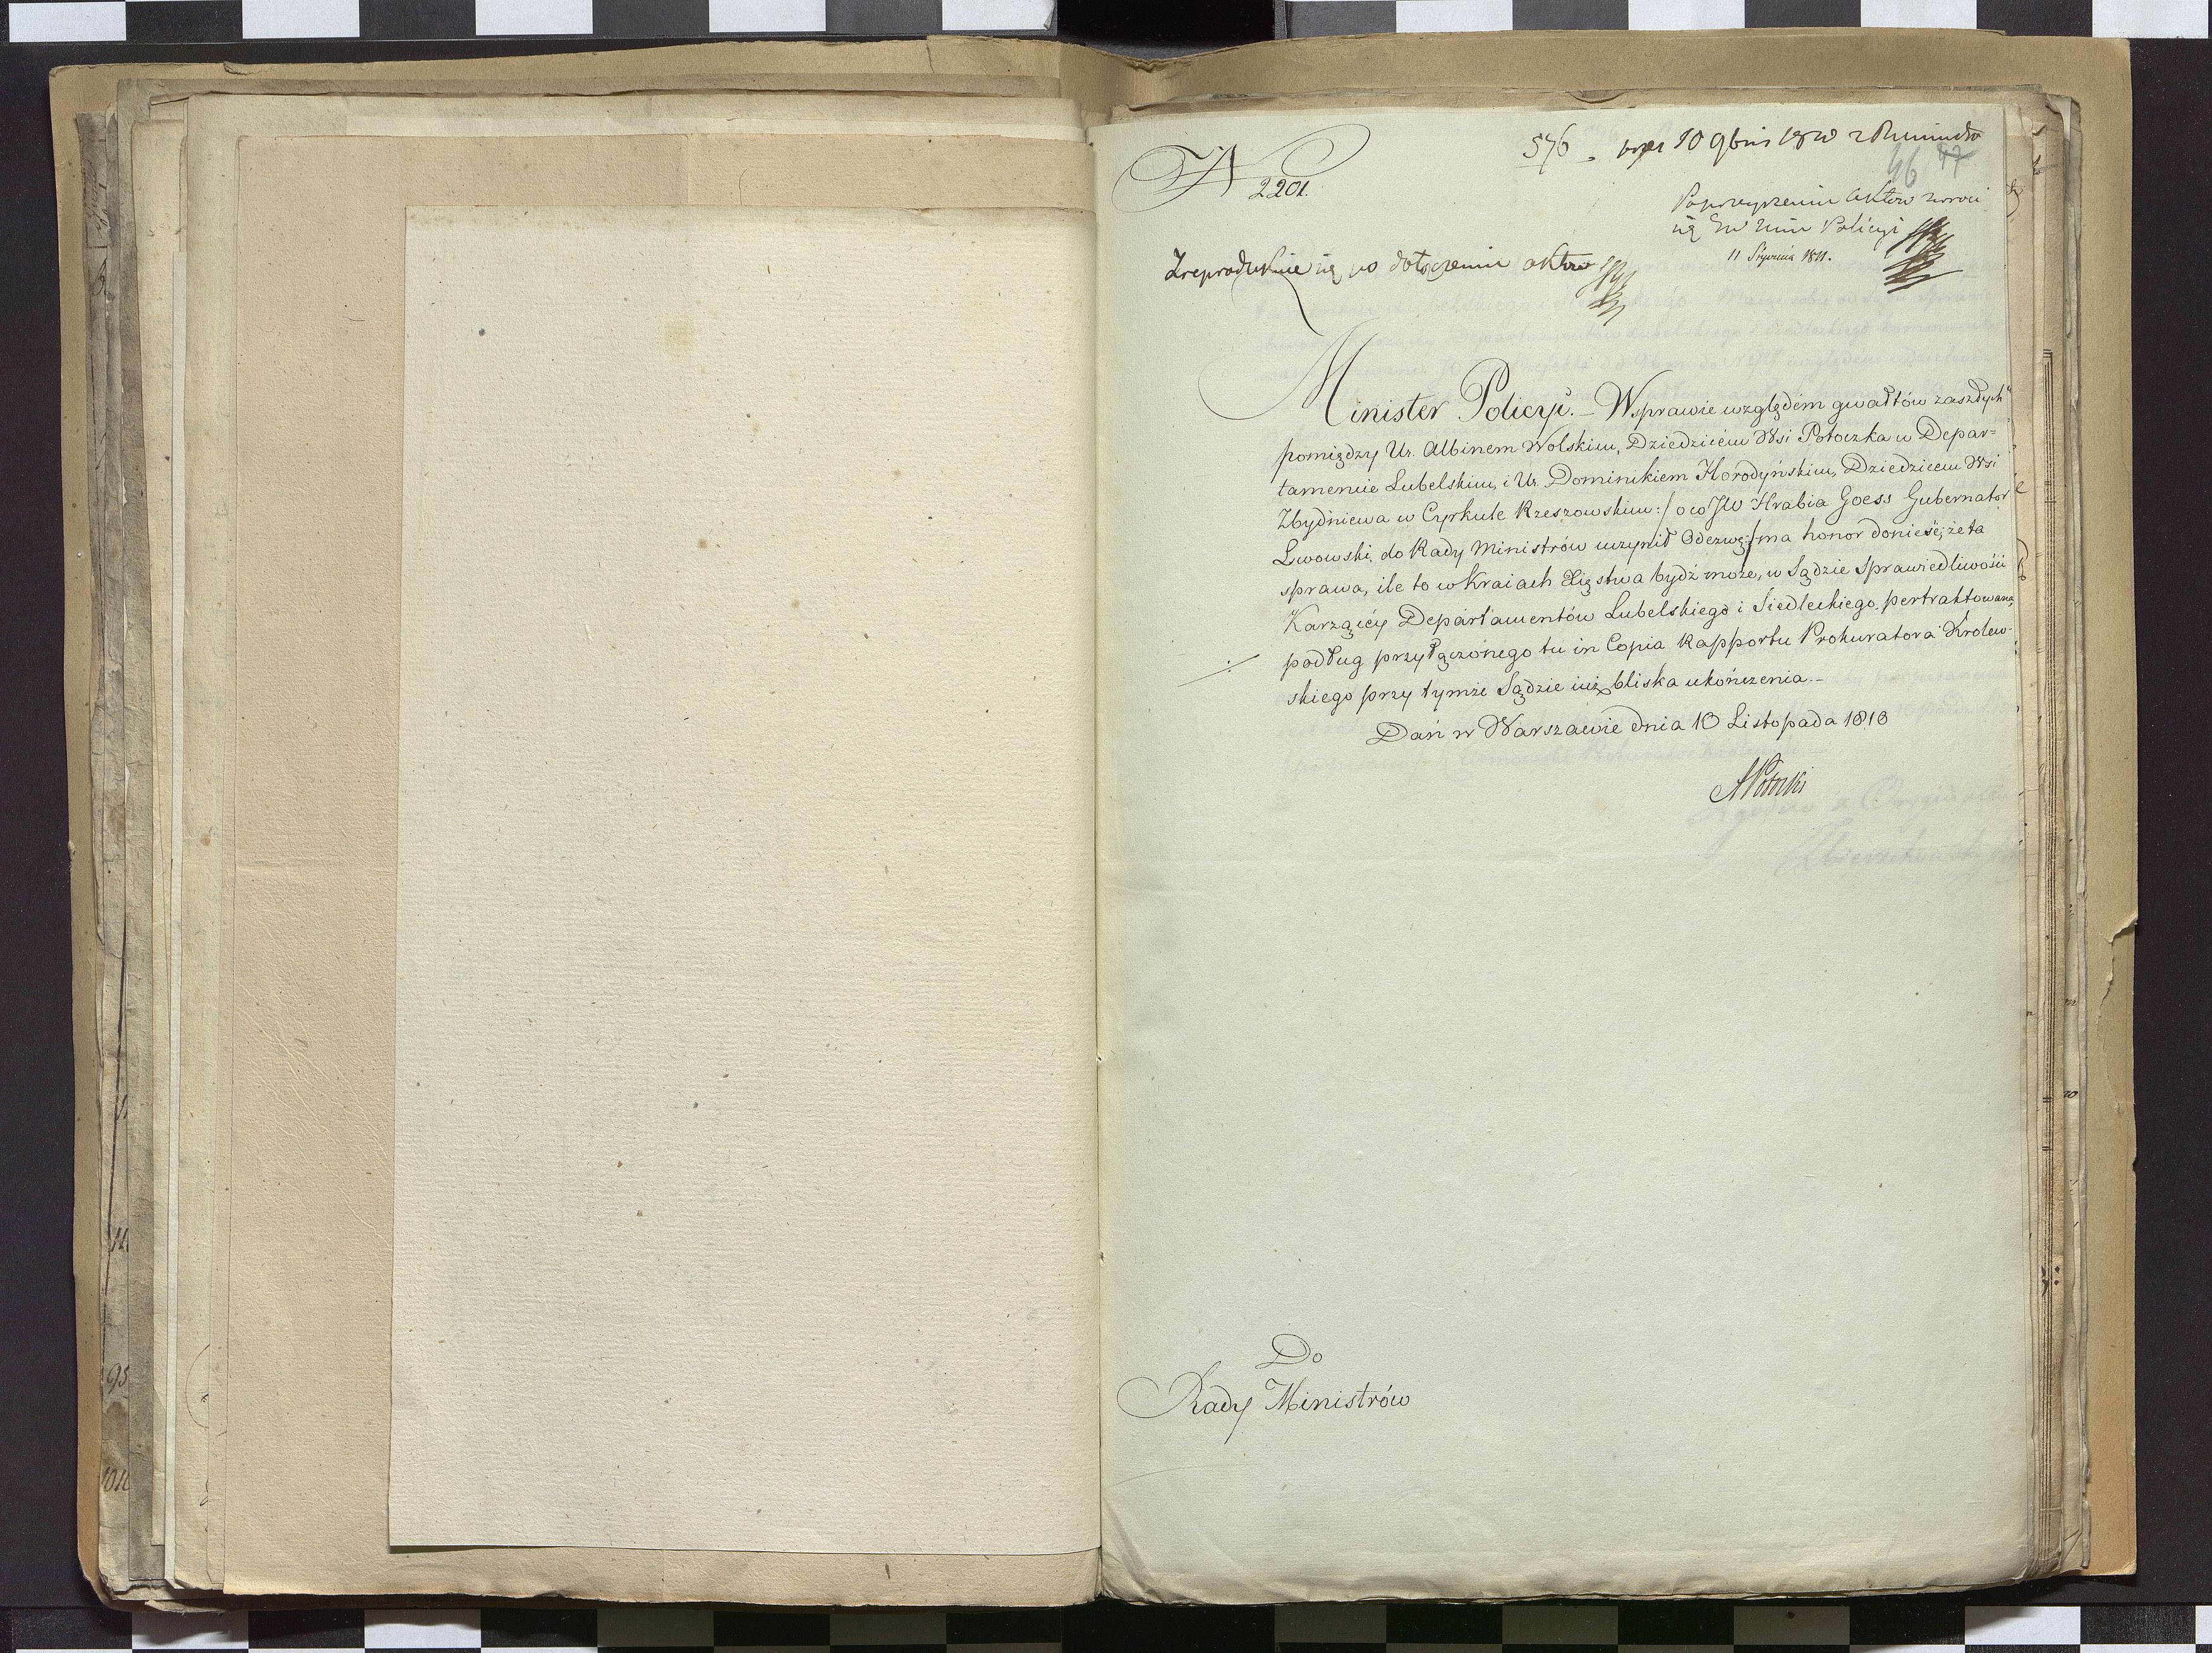 N
2201.
576. 10 9bris 1810 z
46 47
Po przyłączeniu aktów zwróci
się Ew Mini Policyi
11 Stycznia 1811.
Zreprodukuie się po dołączeniu aktów
Minister Policyi. – W sprawie względem gwałtów zaszłych
pomiędzy Ur. Albinem Wolskim, Dziedzicem Wsi Potoczka w Depar=
tamencie Lubelskim, i Ur. Dominikiem Horodyńskim, Dziedzicem Wsi
Zbydniewa w Cyrkule Rzeszowskim :/ o co JW Hrabia Goess Gubernator
Lwowski, do Rady Ministrów uczynił Odezwę :/ ma honor donieść, że ta
sprawa, ile to w Kraiach Xięstwa bydź może, w Sądzie Sprawiedliwości
Karzącéy Departamentów Lubelskiego i Siedleckiego pertraktowana,
podług przyłączonego tu in Copia Rapportu Prokuratora Królew-
skiego przy tymże Sądzie iuż bliska ukończenia. –
Dań w Warszawie dnia 10 Listopada 1810
APotocki
Do
Rady Ministrów